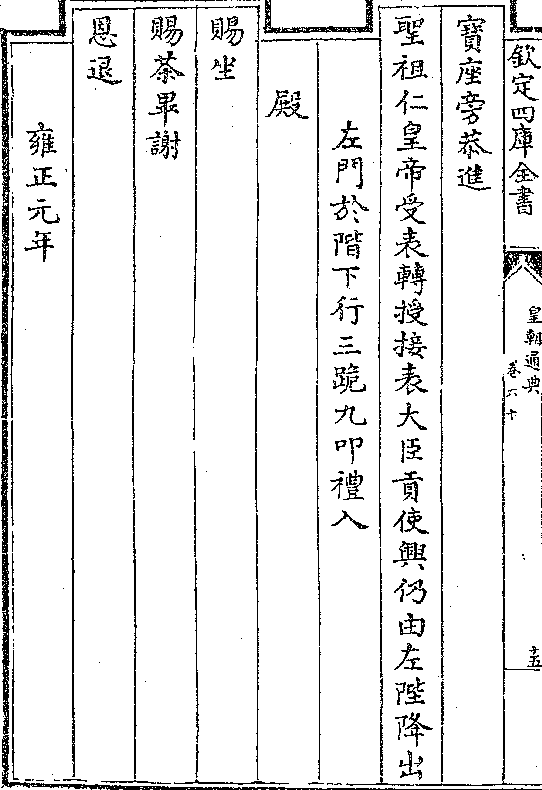 欽定四庫全書
皇朝通典
卷六十
十五
寶座旁恭進
聖祖仁皇帝受表轉授接表大臣貢使興仍由左陛降出
左門於階下行三跪九叩禮入
殿
賜坐
賜茶畢謝
恩退
雍正元年